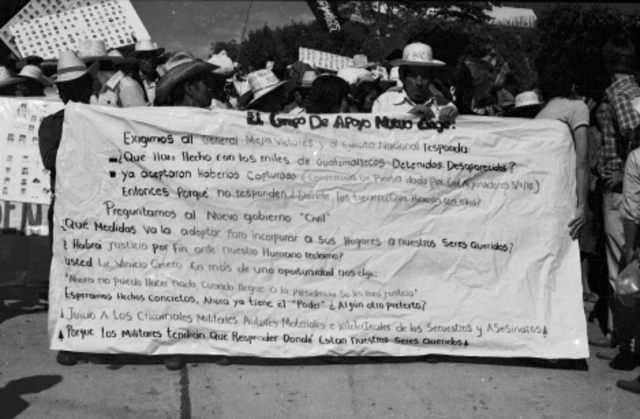 El Grupo De Apoyo Mutuo Exige:
Exigimos al General Mejia Victores y al Ejercito Nacional responda
¿Que Han Hecho con los miles de Guatemaltecos Detenidos Desaparecidos?
ya aceptaron Haberlos Capturado (Conferencia de Prensa dada por
Entonces Porqué no responden ¿Donde los tienen? ¿Que Hicieron con ellos?
Preguntamos al Nuevo gobierno "Civil"
¿Qué Medidas va la adoptar Para incorporar a sus Hogares a nuestros Seres Queridos?
¿Habrá justicia por fin ante nuestro Humano reclamo?
Usted Lic Vinicio Cerezo En más de una oportunidad nos dijo:
"Ahora no puedo Hacer nada, Cuando llegue a la Presidencia Se les Hará justicia"
Esperamos Hechos Concretos, Ahora ya tiene el "Poder" ¿Algun otro pretexto?
¡Juicio A Los Criminales Militares Autores Materiales e intelectuales de los Secuestros y Asesinatos!
¡Porque los Militares tendrán Que Responder Donde Están nuestros Seres Queridos!